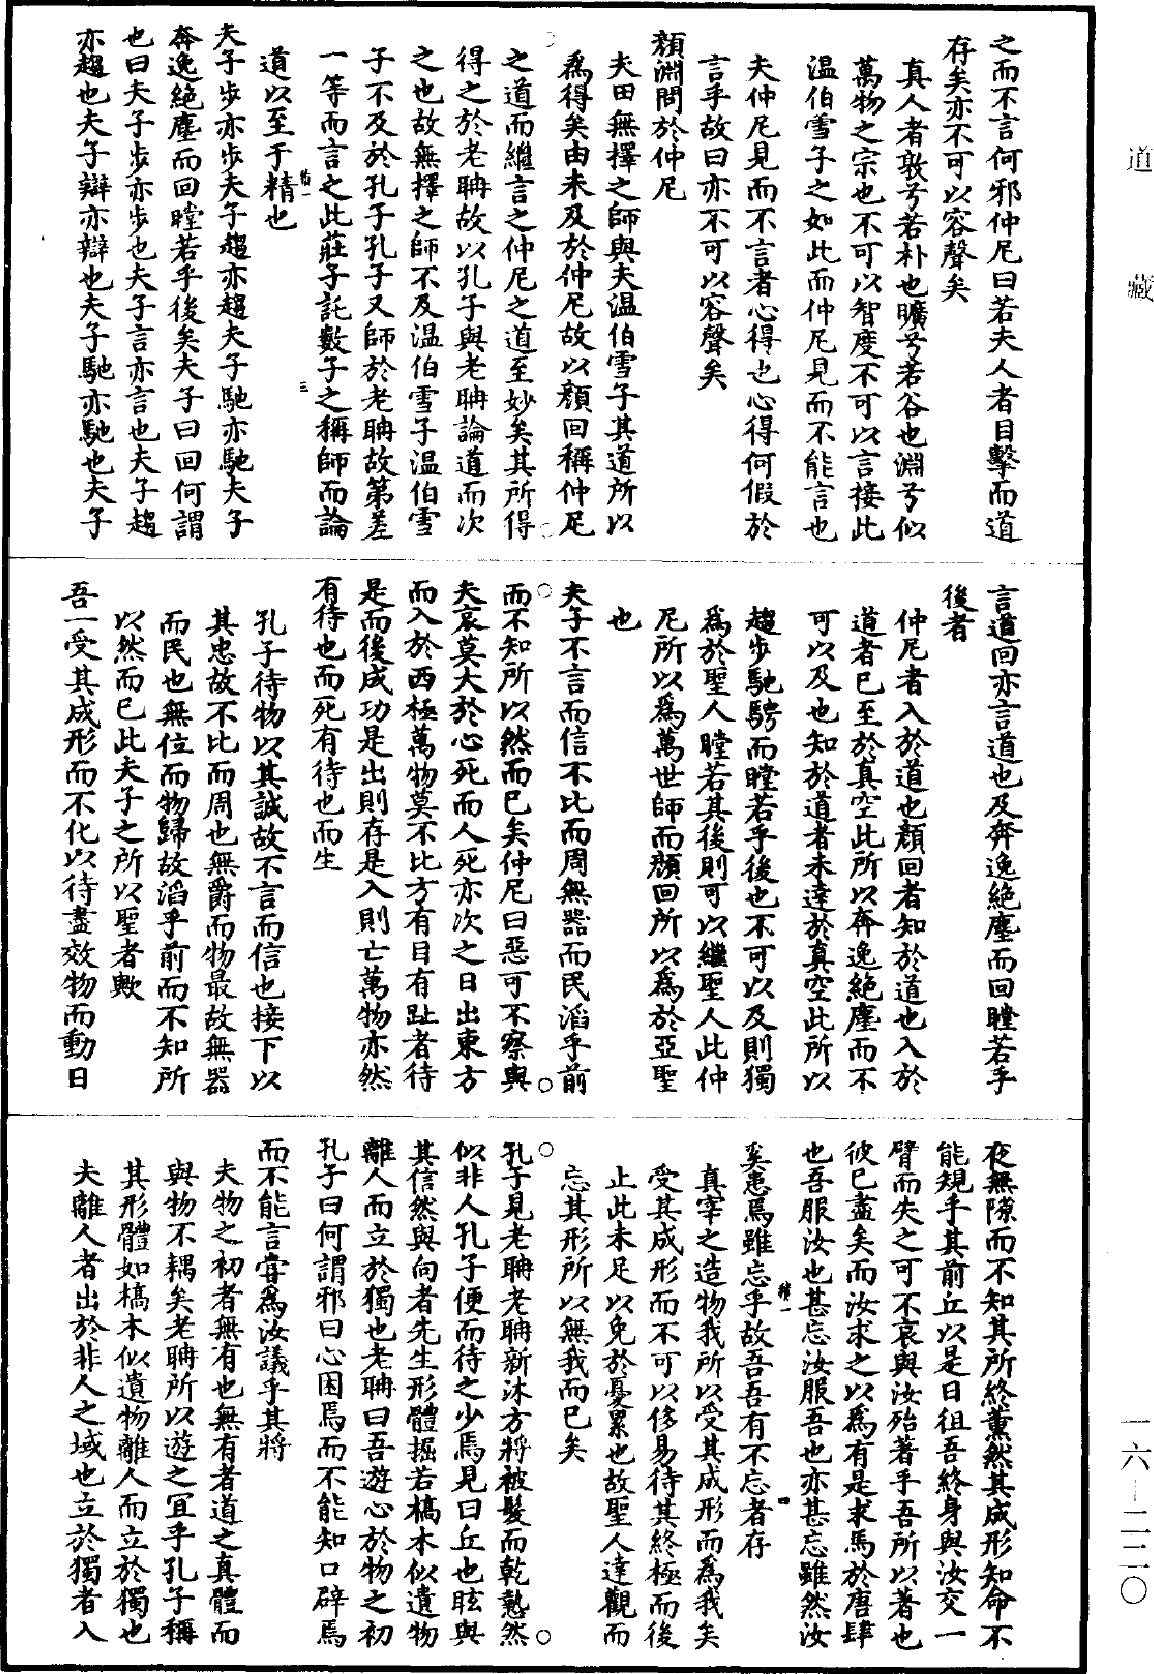 之而不言何邪仲尼曰若夫人者目擊而道
存矣亦不可以容聲矣
真人者敦兮若朴也曠兮若谷也淵兮似
萬物之宗也不可以智度不可以言接此
温伯雪子之如此而仲尼見而不能言也
夫仲尼見而不言者心得也心得何假於
言乎故曰亦不可以容聲矣
顏淵問於仲尼
夫田無擇之師與夫温伯雪子其道所以
為得矣由未及於仲尼故以顏回稱仲尼
之道而繼言之仲尼之道至妙矣其所得
得之於老聃故以孔子與老聃論道而次
之也故無擇之師不及温伯雪子温伯雪
子不及於孔子孔子又師於老聃故第差
一等而言之此莊子託數子之稱師而論
道以至于精也
夫子步亦步夫子趨亦趨夫子馳亦馳夫子
奔逸絕塵而回瞠若乎後矣夫子曰回何謂
也曰夫子步亦步也夫子言亦言也夫子趨
亦趨也夫子辯亦辯也夫子馳亦馳也夫子
言道回亦言道也及奔逸絕塵而回瞠若乎
後者
仲尼者入於道也顏回者知於道也入於
道者已至於真空此所以奔逸絕塵而不
可以及也知於道者未達於真空此所以
趨步馳騁而瞠若乎後也不可以及則獨
為於聖人瞠若其後則可以繼聖人此仲
尼所以為萬世師而顏回所以為於亞聖
也
夫子不言而信不比而周無器而民滔乎前
而不知所以然而已矣仲尼曰惡可不察與
夫哀莫大於心死而人死亦次之日出東方
而入於西極萬物莫不比方有目有趾者待
是而後成功是出則存是入則亡萬物亦然
有待也而死有待也而生
孔子待物以其誠故不言而信也接下以
其忠故不比而周也無爵而物最故無器
而民也無位而物歸故滔乎前而不知所
以然而已此夫子之所以聖者歟
吾一受其成形而不化以待盡效物而動日
夜無隙而不知其所終薰然其成形知命不
能規乎其前丘以是日徂吾終身與汝交一
臂而失之可不哀與汝殆著乎吾所以著也
彼已盡矣而汝求之以為有是求馬於唐肆
也吾服汝也甚忘汝服吾也亦甚忘雖然汝
奚患焉雖忘乎故吾吾有不忘者存
真宰之造物我所以受其成形而為我矣
受其成形而不可以侈易待其終極而後
止此未足以免於憂累也故聖人達觀而
忘其形所以無我而已矣
孔子見老聃老聃新沐方將被髮而乾慹然
似非人孔子便而待之少焉見曰丘也眩與
其信然與向者先生形體掘若槁木似遺物
離人而立於獨也老聃曰吾遊心於物之初
孔子曰何謂邪曰心困焉而不能知口辟焉
而不能言嘗為汝議乎其將
夫物之初者無有也無有者道之真體而
與物不耦矣老聃所以遊之宜乎孔子稱
其形體如槁木似遺物離人而立於獨也
夫離人者出於非人之域也立於獨者入
道藏
一六—二二〇